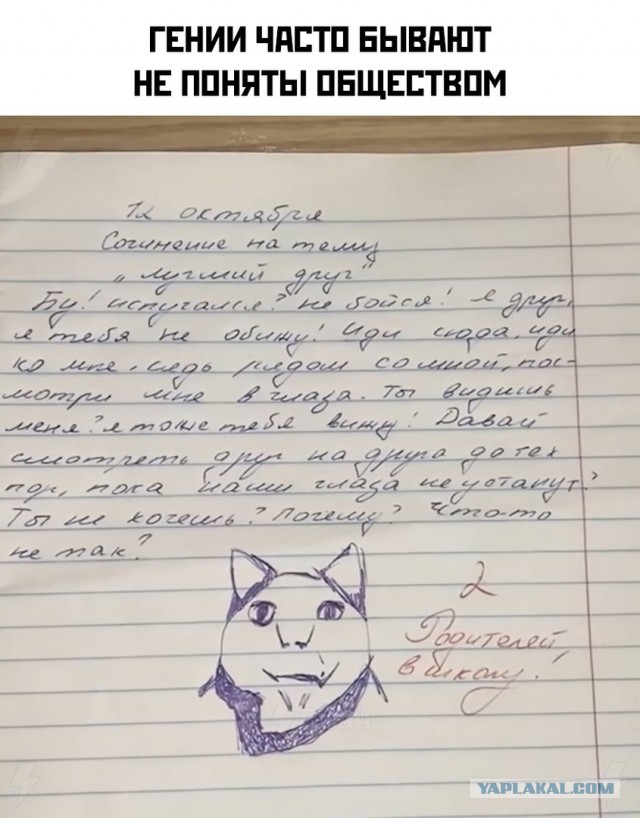 ГЕНИИ ЧАСТО БЫВАЮТ
НЕ ПОНЯТЫ ОБЩЕСТВОМ
12 октября
Сочинение на тему
„лучший друг"
Бу! испугался? не бойся! Я друг,
я тебя не обижу! Иди сюда, иди
ко мне, сядь рядом со мной, пос-
мотри мне в глаза. Ты видишь
меня? я тоже тебя вижу! Давай
смотреть друг на друга до тех
пор, пока наши глаза не устанут?
Ты не хочешь? Почему? Что-то
не так?
2
Родителей
в школу!
YAPLAKAL.COM